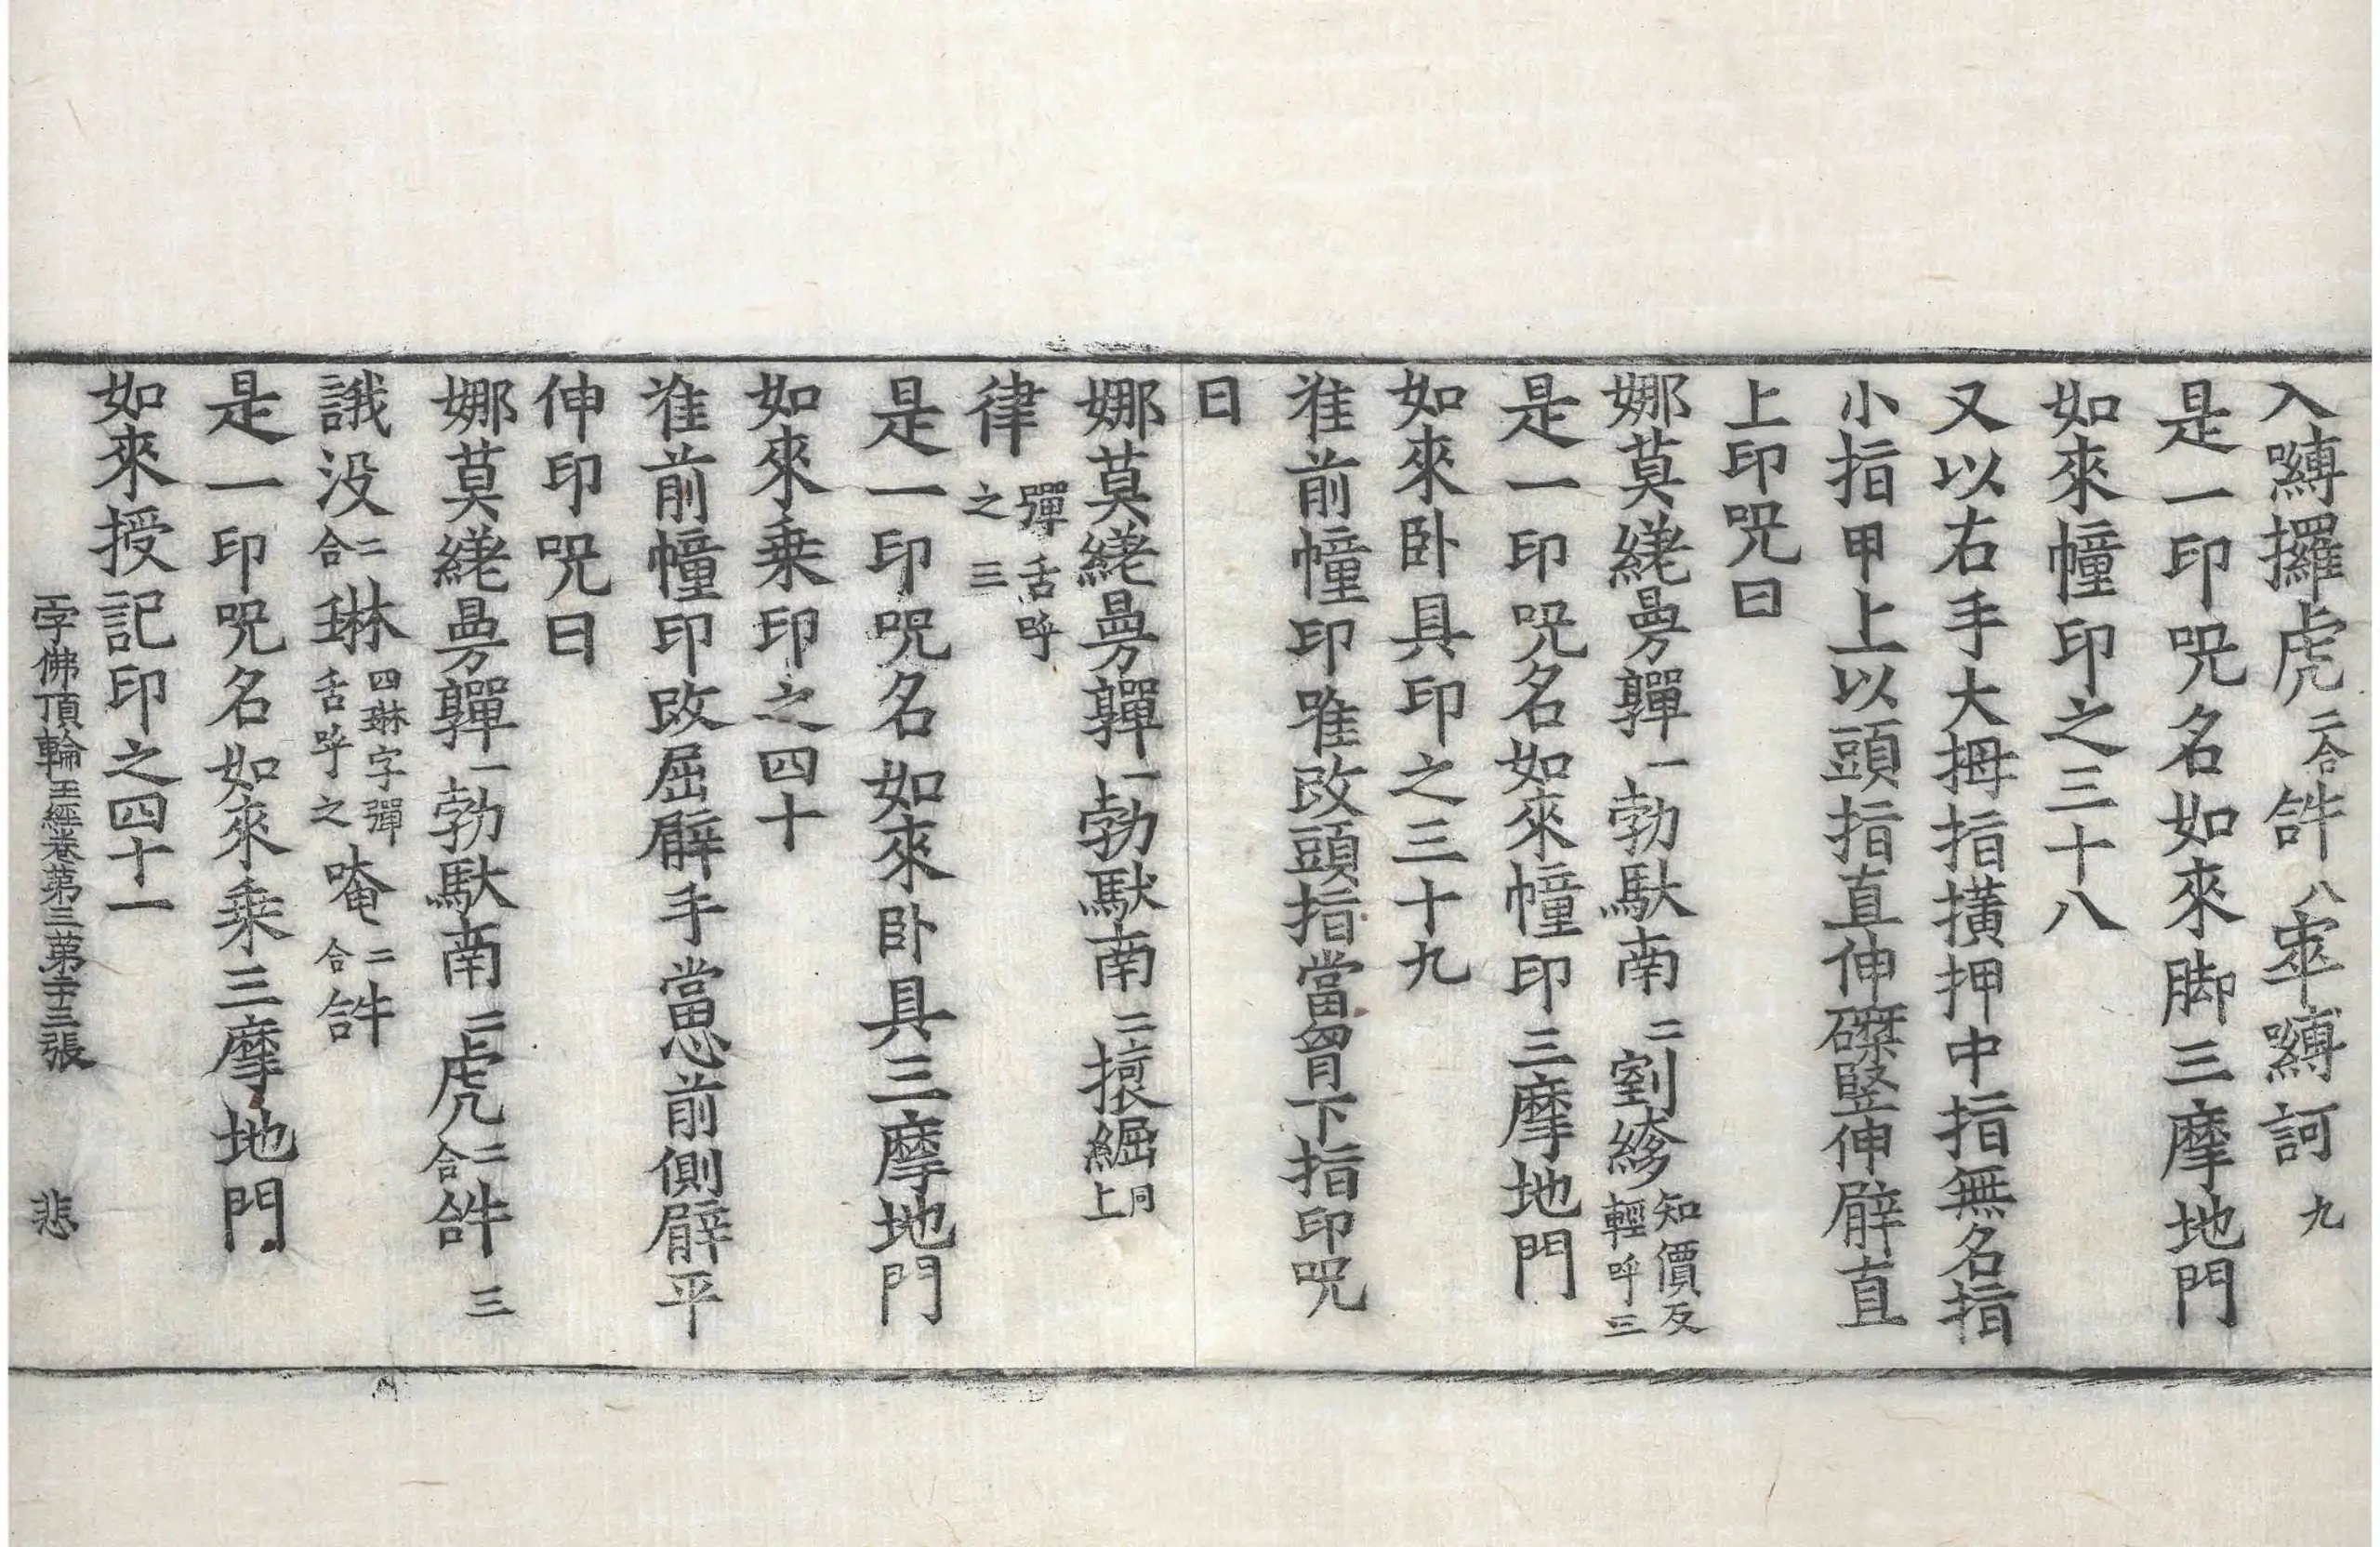 入嚩囉虎二合𤙖八窣嚩訶九
是一印呪名如來脚三摩地門
如來幢印之三十八
又以右手大拇指撗押中指無名指
小指甲上以頭指直伸磔竪伸臂直
上印呪曰
娜莫縒曼嚲一勃馱南二劄縿知價反輕呼三
是一印呪名如來幢印三摩地門
如來卧具印之三十九
准前幢印唯改頭指當胷下指印呪
曰
娜莫縒曼嚲一勃馱南二掝䋖同上
律彈舌呼之三
是一印呪名如來卧具三摩地門
如來乗印之四十
准前幢印改屈臂手當心前側臂平
伸印呪曰
娜莫縒曼嚲一勃馱南二虎二合𤙖三
誐没二合琳四琳字彈舌呼之唵二合𤙖
是一印呪名如來乗三摩地門
如來授記印之四十一
一字佛頂輪王經卷第三第二十三張 悲